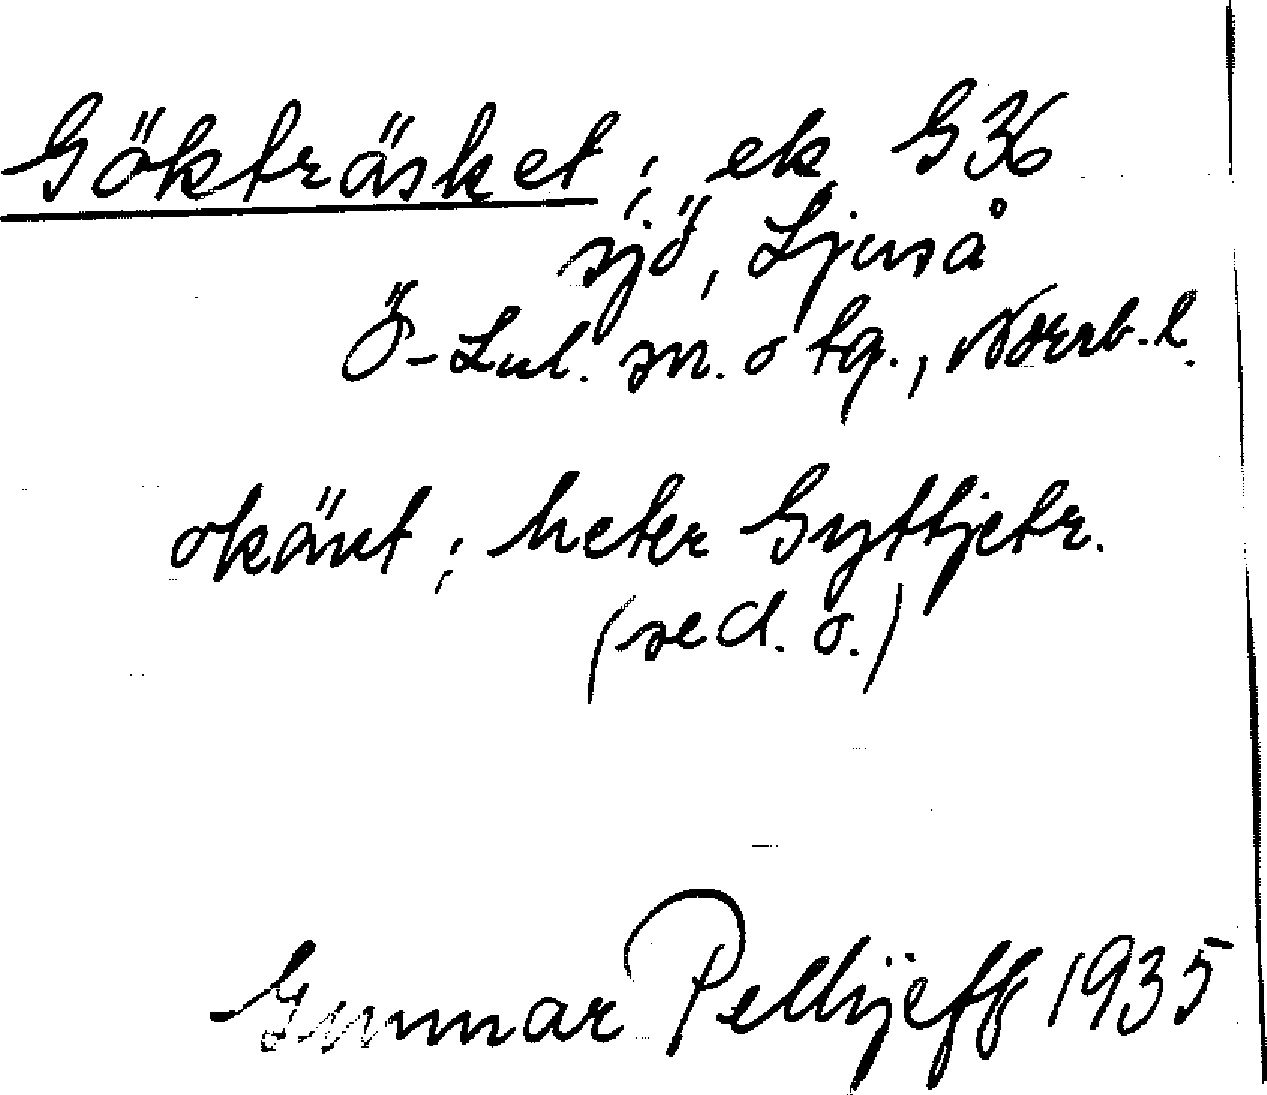 Gökträsket; ek G36
sjö, Ljuså
Ö-Lul. sn. o tg., Norrb. l.
okänt; heter Gyttjetr.
(se d. o.)
Gunnar Pellijeff 1935